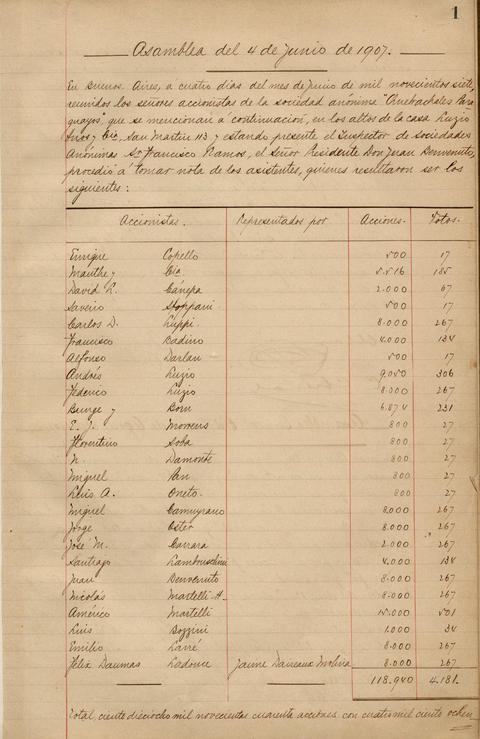 1
Asamblea del 4 de Junio de 1907.
En Buenos Aires, á cuatro dias del mes de Junio de mil novecientos siete,
reunidos los señores accionistas de la sociedad anónima "Quebrachales Para
guayos", que se mencionan á continuacion, en los altos de la casa Luzio
Hnos y Cia, San Martin 113 y estando presente el Inspector de Sociedades
Anónimas Sr Francisco Ramos, el Señor Presidente Don Juan Benvenuto,
procedió á tomar nota de los asistentes, quienes resultaron ser los
siguientes:
Accionistas. Representados por Acciones. Votos.
Enrique Copello 500 17
Mauthe y Cia. 5.516 185
David L. Cánepa 2.000 67
Saverio Stoppani 500 17
Carlos D. Luppi. 8.000 267
Francisco Badino 4.000 134
Alfonso Darlan 500 17
Andrés Luzio 9.050 306
Federico Luzio 8.000 267
Bunge y Born 6.874 231
E. J. 800 27
Florentino Soba 800 27
N. Damonte 800 27
Miguel Pan 800 27
Luis A. Oneto. 800 27
Miguel Camuyrano 8.000 267
Jorge Oster 8.000 267
José M. Carrara 2.000 267
Santiago Lambruschini 4.000 134
Juan Benvenuto 8.000 267
Nicolás Martelli H- 8.000 267
Américo Martelli 15.000 501
Luis Bozzini 1.000 34
Emilio Larré 8.000 267
Félix Daumas Ladouce Jaime Molina 8.000 267
118.940 4.181.
Total ciento dieciocho mil novecientas cuarenta acciones con cuatro mil ciento ochen